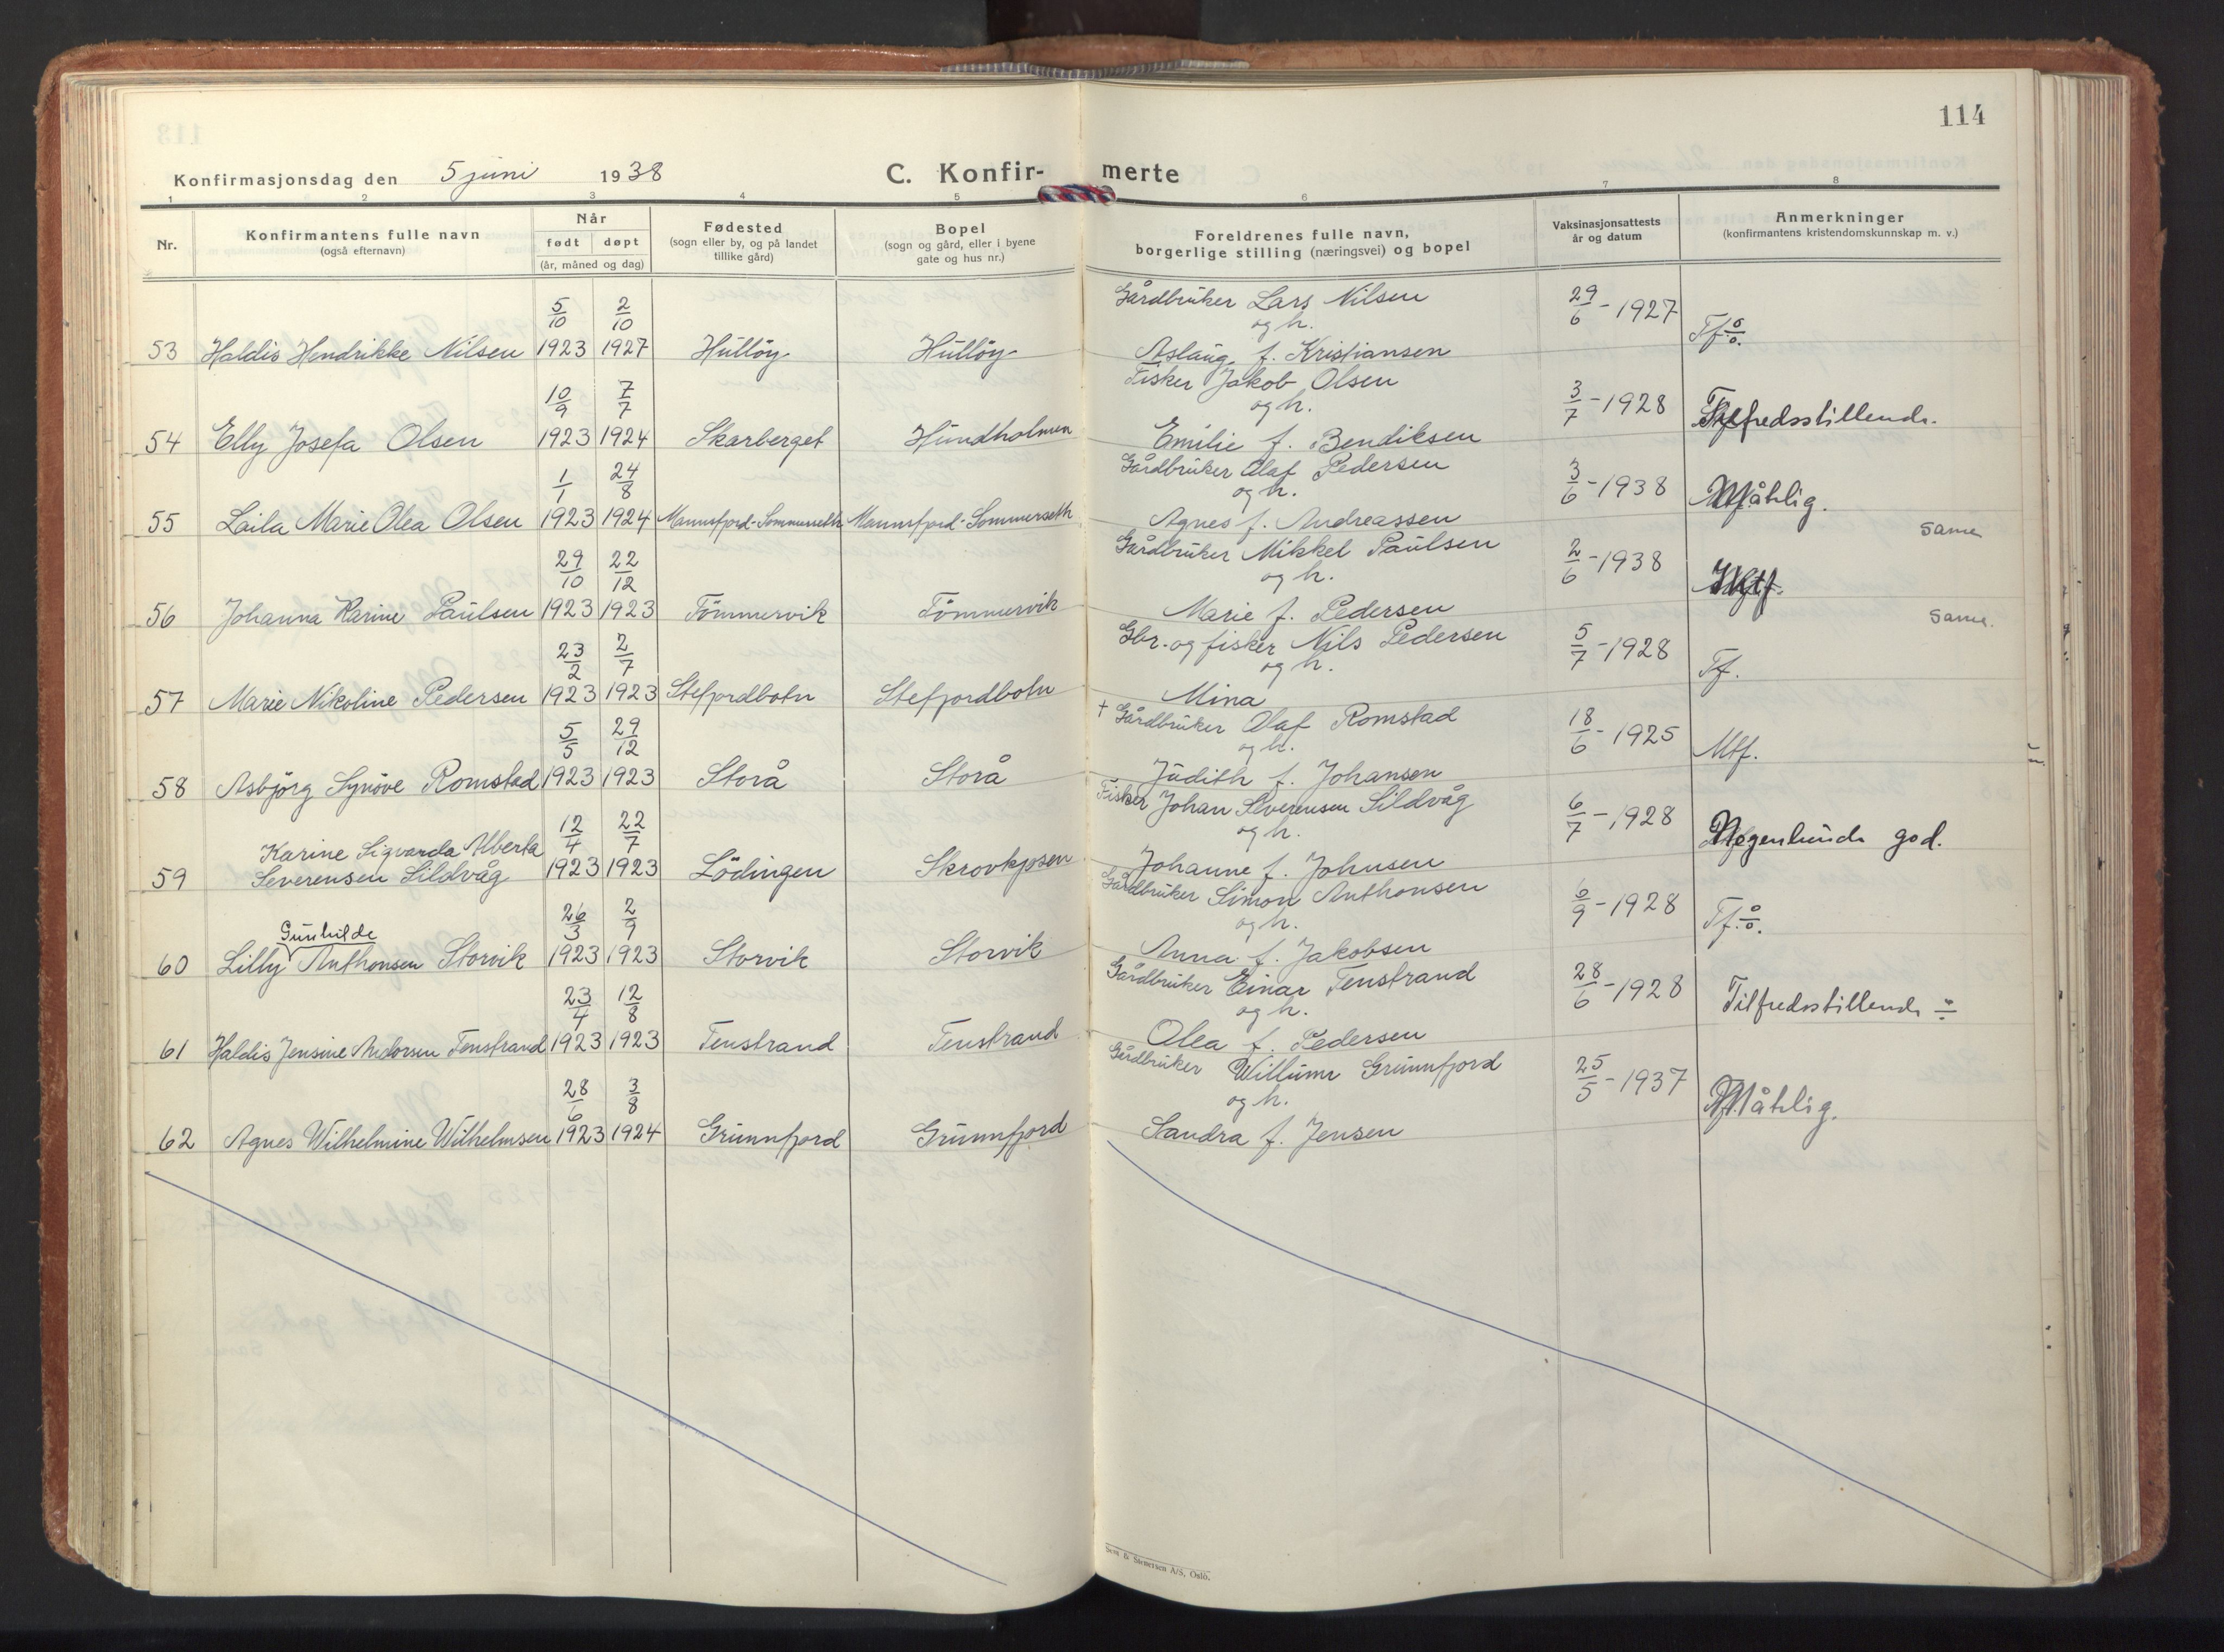 114
Konfirmasjonsdag den 5 juni 1938
C. Konfir- merte
1 2 3 4 5 6 7 8
Nr.
Konfirmantens fulle navn
(også efternavn)
Når
født døpt
(år, måned og dag)
Fødested
(sogn eller by, og på landet
tillike gård)
Bopel
(sogn og gård, eller i byene
gate og hus nr.)
Foreldrenes fulle navn,
borgerlige stilling (næringsvei) og bopel
Vaksinasjonsattests
år og datum
Anmerkninger
(konfirmantens kristendomskunnskap m. v.)
5/10 2/10 Gårdbruker Lars Nilsen 29/6 - 1927
og h.
53 Haldis Hendrikke Nilsen 1923 1927 Hulløy Hulløy Aslaug f. Kristiansen Tf ÷
10/9 7/7 Fisker Jakob Olsen 3/7 - 1928
og h.
54 Elly Josefa Olsen 1923 1924 Skarberget Hundholmen Emilie f. Bendiksen Tilfredsstillende.
1/1 24/8 Gårdbruker Olaf Pedersen 3/6 - 1938
og h.
55 Laila Marie Olea Olsen 1923 1924 Mannsfjord-Sommerseth Mannsfjord-Sommerseth Agnes f. Andreassen Måtelig.
same
29/10 22/12 Gårdbruker Mikkel Paulsen 2/6 - 1938
og h.
56 Johanna Karine Paulsen 1923 1923 Tømmervik Tømmervik Marie f. Pedersen
same.
23/2 2/7 Gbr. og fisker Nils Pedersen 5/7 - 1928
og h.
57 Marie Nikoline Pedersen 1923 1923 Stefjordbotn Stefjordbotn Mina Tf.
5/5 29/12 + Gårdbruker Olaf Romstad 18/6 - 1925
og h.
58 Asbjörg Synöve Romstad 1923 1923 Storå Storå Judith f. Johansen Mtf.
12/4 22/7 Fisker Johan Severensen Sildvåg 6/7 - 1928
Karine Sigvarda Alberta og h.
59 Severensen Sildvåg 1923 1923 Lödingen Skrovkjosen Johanne f. Johnsen Megenkunde god.
26/3 2/9 Gårdbruker Simon Anthonsen 6/9 - 1928
Gunhilde og h.
60 Lilly Anthonsen Storvik 1923 1923 Storvik Storvik Anna f. Jakobsen Tf. ÷
23/4 12/8 Gårdbruker Einar Tenstrand 28/6 - 1928
og h.
61 Haldis Jensine Andorsen Tenstrand 1923 1923 Tenstrand Tenstrand Olea f. Pedersen Tilfredsstillende ÷
28/6 3/8 Gårdbruker Willum Grunnfjord 25/5 - 1937
og h.
62 Agnes Wilhelmine Wilhelmsen 1923 1924 Grunnfjord Grunnfjord Sandra f. Jensen Måtelig.
Sem & Stenersen A/S, Oslo.